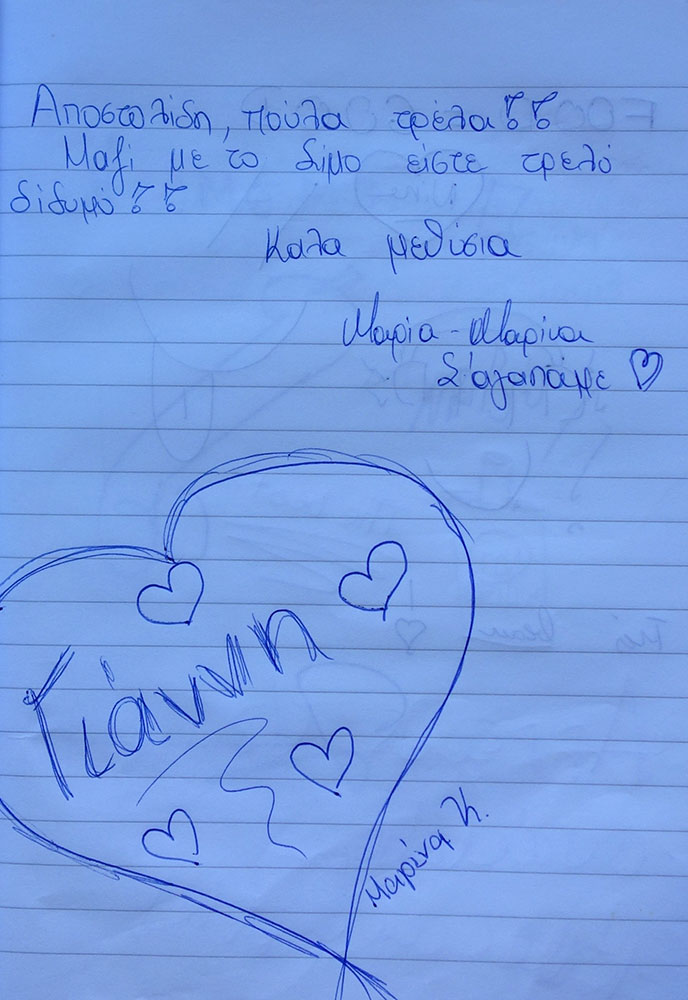 Αποστολίδη, πούλα τρέλα!!
Μαζί με το Δίμο είστε τρελό
δίδυμο!!
Καλα μεθύσια
Μαρία - Μαρίνα
Σ'αγαπάμε
Γιάννη
Μαρίνα Κ.